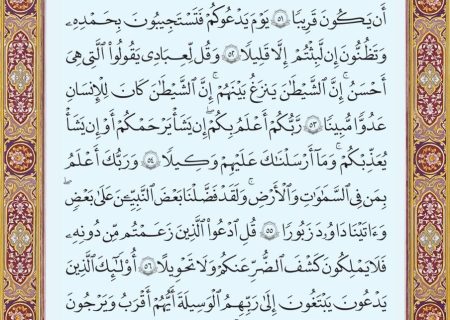 أَن يَكُونَ قَرِيبًا ۝٥١ يَوْمَ يَدْعُوكُمْ فَتَسْتَجِيبُونَ بِحَمْدِهِۦ
وَتَظُنُّونَ إِن لَّبِثْتُمْ إِلَّا قَلِيلًا ۝٥٢ وَقُل لِّعِبَادِى يَقُولُوا۟ ٱلَّتِى هِىَ
أَحْسَنُ ۚ إِنَّ ٱلشَّيْطَٰنَ يَنزَغُ بَيْنَهُمْ ۚ إِنَّ ٱلشَّيْطَٰنَ كَانَ لِلْإِنسَٰنِ
عَدُوًّا مُّبِينًا ۝٥٣ رَّبُّكُمْ أَعْلَمُ بِكُمْ ۖ إِن يَشَأْ يَرْحَمْكُمْ أَوْ إِن يَشَأْ
يُعَذِّبْكُمْ ۚ وَمَآ أَرْسَلْنَٰكَ عَلَيْهِمْ وَكِيلًا ۝٥٤ وَرَبُّكَ أَعْلَمُ
بِمَن فِى ٱلسَّمَٰوَٰتِ وَٱلْأَرْضِ ۗ وَلَقَدْ فَضَّلْنَا بَعْضَ ٱلنَّبِيِّۦنَ عَلَىٰ بَعْضٍ ۖ
وَءَاتَيْنَا دَاوُۥدَ زَبُورًا ۝٥٥ قُلِ ٱدْعُوا۟ ٱلَّذِينَ زَعَمْتُم مِّن دُونِهِۦ
فَلَا يَمْلِكُونَ كَشْفَ ٱلضُّرِّ عَنكُمْ وَلَا تَحْوِيلًا ۝٥٦ أُو۟لَٰٓئِكَ ٱلَّذِينَ
يَدْعُونَ يَبْتَغُونَ إِلَىٰ رَبِّهِمُ ٱلْوَسِيلَةَ أَيُّهُمْ أَقْرَبُ وَيَرْجُونَ